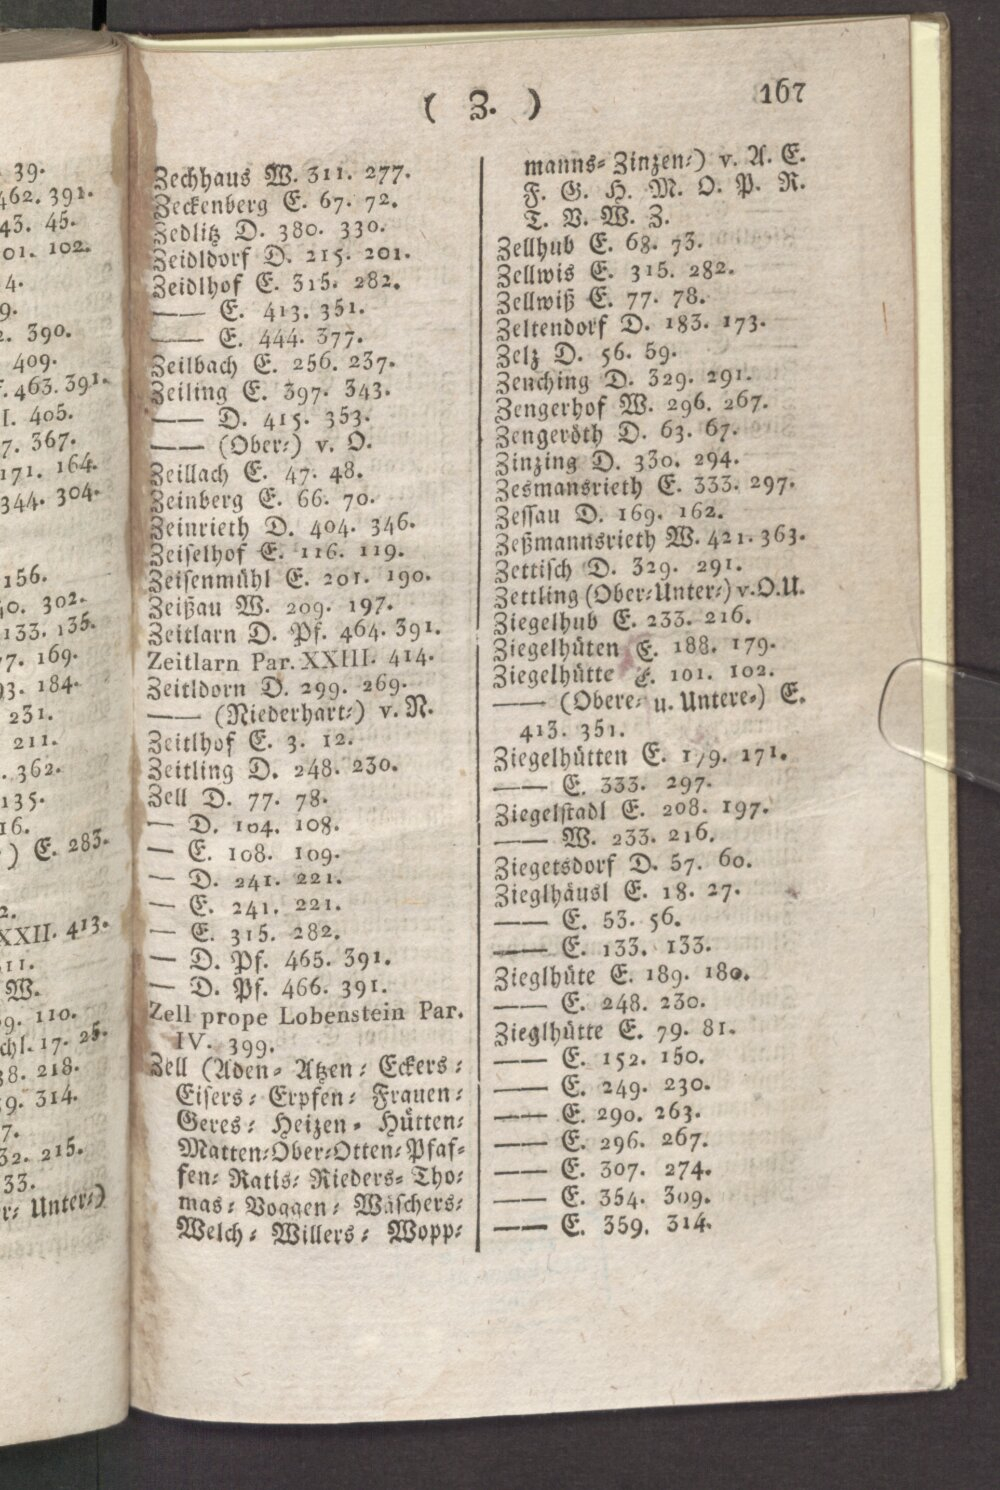 ( Z. ) 167
Zechhaus W. 311. 277.
Zeckenberg E. 67. 72.
Zedlitz D. 380. 330.
Zeidldorf D. 215. 201.
Zeidlhof E. 315. 282.
—— E. 413. 351.
—— E. 444. 377.
Zeilbach E. 256. 237.
Zeiling E. 397. 343.
—— D. 415. 353.
—— (Ober-) v. O.
Zeillach E. 47. 48.
Zeinberg E. 66. 70.
Zeinrieth D. 404. 346.
Zeiselhof E. 116. 119.
Zeisenmühl E. 201. 190.
Zeißau W. 209. 197.
Zeitlarn D. Pf. 464. 391.
Zeitlarn Par. XXIII. 414.
Zeitldorn D. 299. 269.
—— (Niederhart-) v. N.
Zeitlhof E. 3. 12.
Zeitling D. 248. 230.
Zell D. 77. 78.
— D. 104. 108.
— E. 108. 109.
— D. 241. 221.
— E. 241. 221.
— E. 315. 282.
— D. Pf. 465. 391.
— D. Pf. 466. 391.
Zell prope Lobenstein Par.
IV. 399.
Zell (Aden- Atzen- Eckers-
Eisers- Erpfen- Frauen-
Geres- Heizen- Hütten-
Matten-Ober-Otten-Pfaf-
fen- Ratis- Rieders- Tho-
mas- Voggen- Wäschers-
Welch- Willers- Wopp-
manns- Zinzen-) v. A. E.
F. G. H. M. O. P. R.
T. V. W. Z.
Zellhub E. 68. 73.
Zellwis E. 315. 282.
Zellwiß E. 77. 78.
Zeltendorf D. 183. 173.
Zelz D. 56. 59.
Zenching D. 329. 291.
Zengerhof W. 296. 267.
Zengeröth D. 63. 67.
Zinzing D. 330. 294.
Zesmansrieth E. 333. 297.
Zessau D. 169. 162.
Zeßmannsrieth W. 421. 363.
Zettisch D. 329. 291.
Zettling (Ober-Unter-) v.O.U.
Ziegelhub E. 233. 216.
Ziegelhüten E. 188. 179.
Ziegelhütte E. 101. 102.
—— (Obere- u. Untere-) E.
413. 351.
Ziegelhütten E. 179. 171.
—— E. 333. 297.
Ziegelstadl E. 208. 197.
—— W. 233. 216.
Ziegetsdorf D. 57. 60.
Zieglhäusl E. 18. 27.
—— E. 53. 56.
—— E. 133. 133.
Zieglhüte E. 189. 180.
—— E. 248. 230.
Zieglhütte E. 79. 81.
—— E. 152. 150.
—— E. 249. 230.
—— E. 290. 263.
—— E. 296. 267.
—— E. 307. 274.
—— E. 354. 309.
—— E. 359. 314.